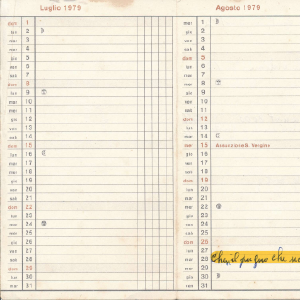 Luglio 1979
dom 1
lun 2
mar 3
mer 4
gio 5
ven 6
sab 7
dom 8
lun 9
mar 10
mer 11
gio 12
ven 13
sab 14
dom 15
lun 16
mar 17
mer 18
gio 19
ven 20
sab 21
dom 22
lun 23
mar 24
mer 25
gio 26
ven 27
sab 28
dom 29
lun 30
mar 31
Agosto 1979
mer 1
gio 2
ven 3
sab 4
dom 5
lun 6
mar 7
mer 8
gio 9
ven 10
sab 11
dom 12
lun 13
mar 14
mer 15 Assunzione B. Vergine
gio 16
ven 17
sab 18
dom 19
lun 20
mar 21
mer 22
gio 23
ven 24
sab 25
dom 26
lun 27
mar 28 il che
mer 29
gio 30
ven 31